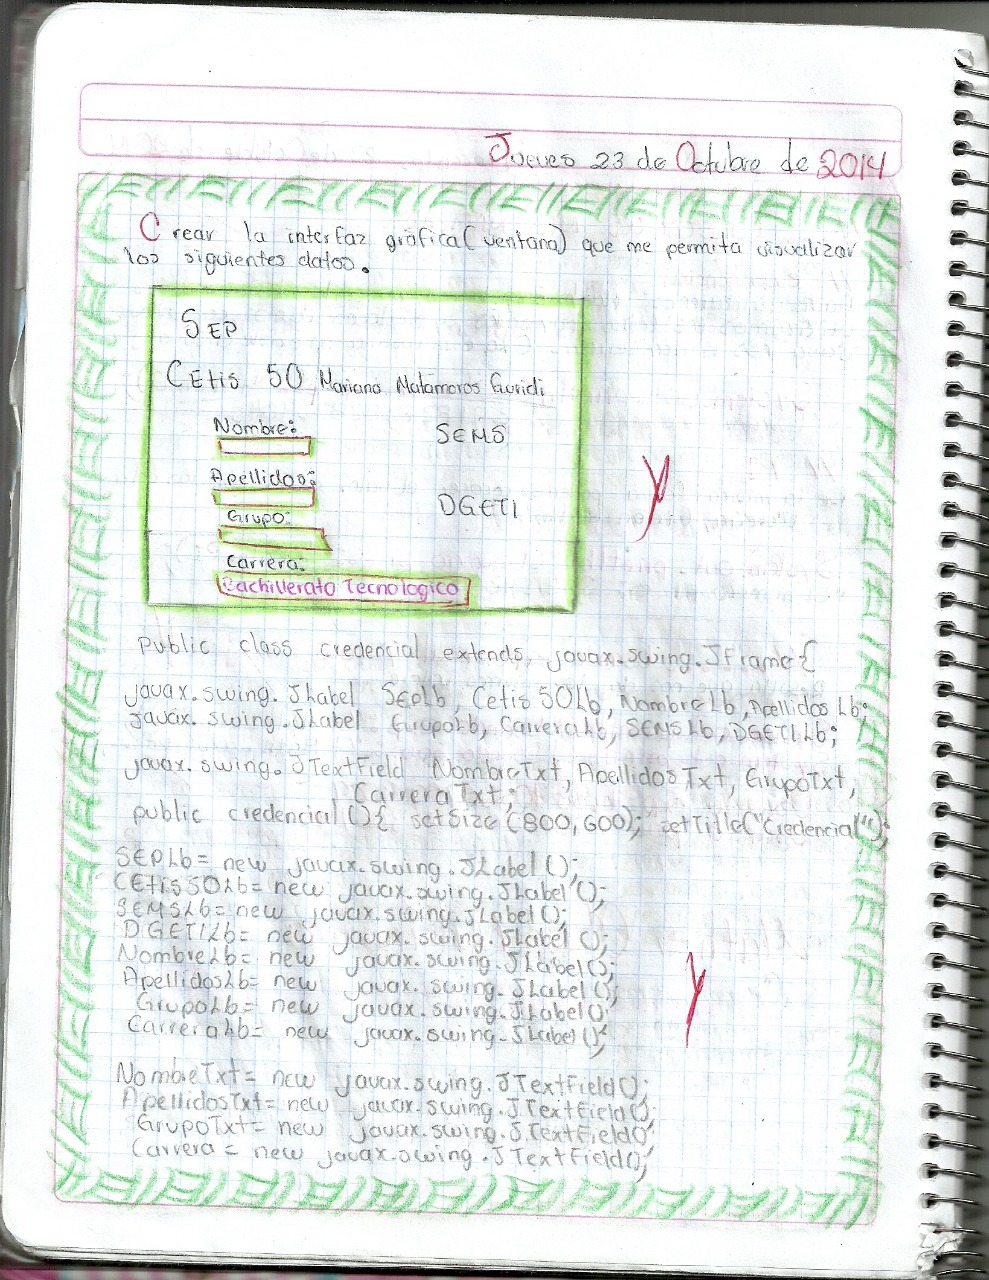 Jueves 23 de Octubre de 2014
Crear la interfaz gráfica (ventana) que me permita visualizar
los siguientes datos.
SEP
CEtis 50 Mariano Matamoros Guridi
Nombre:
SEMS
Apellidos:
DGETI
Grupo:
Carrera:
Bachillerato Tecnologico
public class credencial extends javax.swing.JFrame {
javax.swing.JLabel SEPLb, Cetis50Lb, NombreLb, ApellidosLb;
javax.swing.JLabel GrupoLb, CarreraLb, SEMSLb, DGETILb;
javax.swing.JTextField NombreTxt, ApellidosTxt, GrupoTxt,
CarreraTxt;
public credencial () { setSize (800,600); setTitle("Credencial");
SEPLb= new javax.swing.JLabel ();
CEtis50Lb= new javax.swing.JLabel ();
SEMSLb= new javax.swing.JLabel ();
DGETILb= new javax.swing.JLabel ();
NombreLb= new javax.swing.JLabel();
ApellidosLb= new javax.swing.JLabel ();
GrupoLb= new javax.swing.JLabel ();
CarreraLb= new javax.swing.JLabel ();
NombreTxt= new javax.swing.JTextField();
ApellidosTxt= new javax.swing.JTextField();
GrupoTxt= new javax.swing.JTextField();
Carrera = new javax.swing.JTextField();